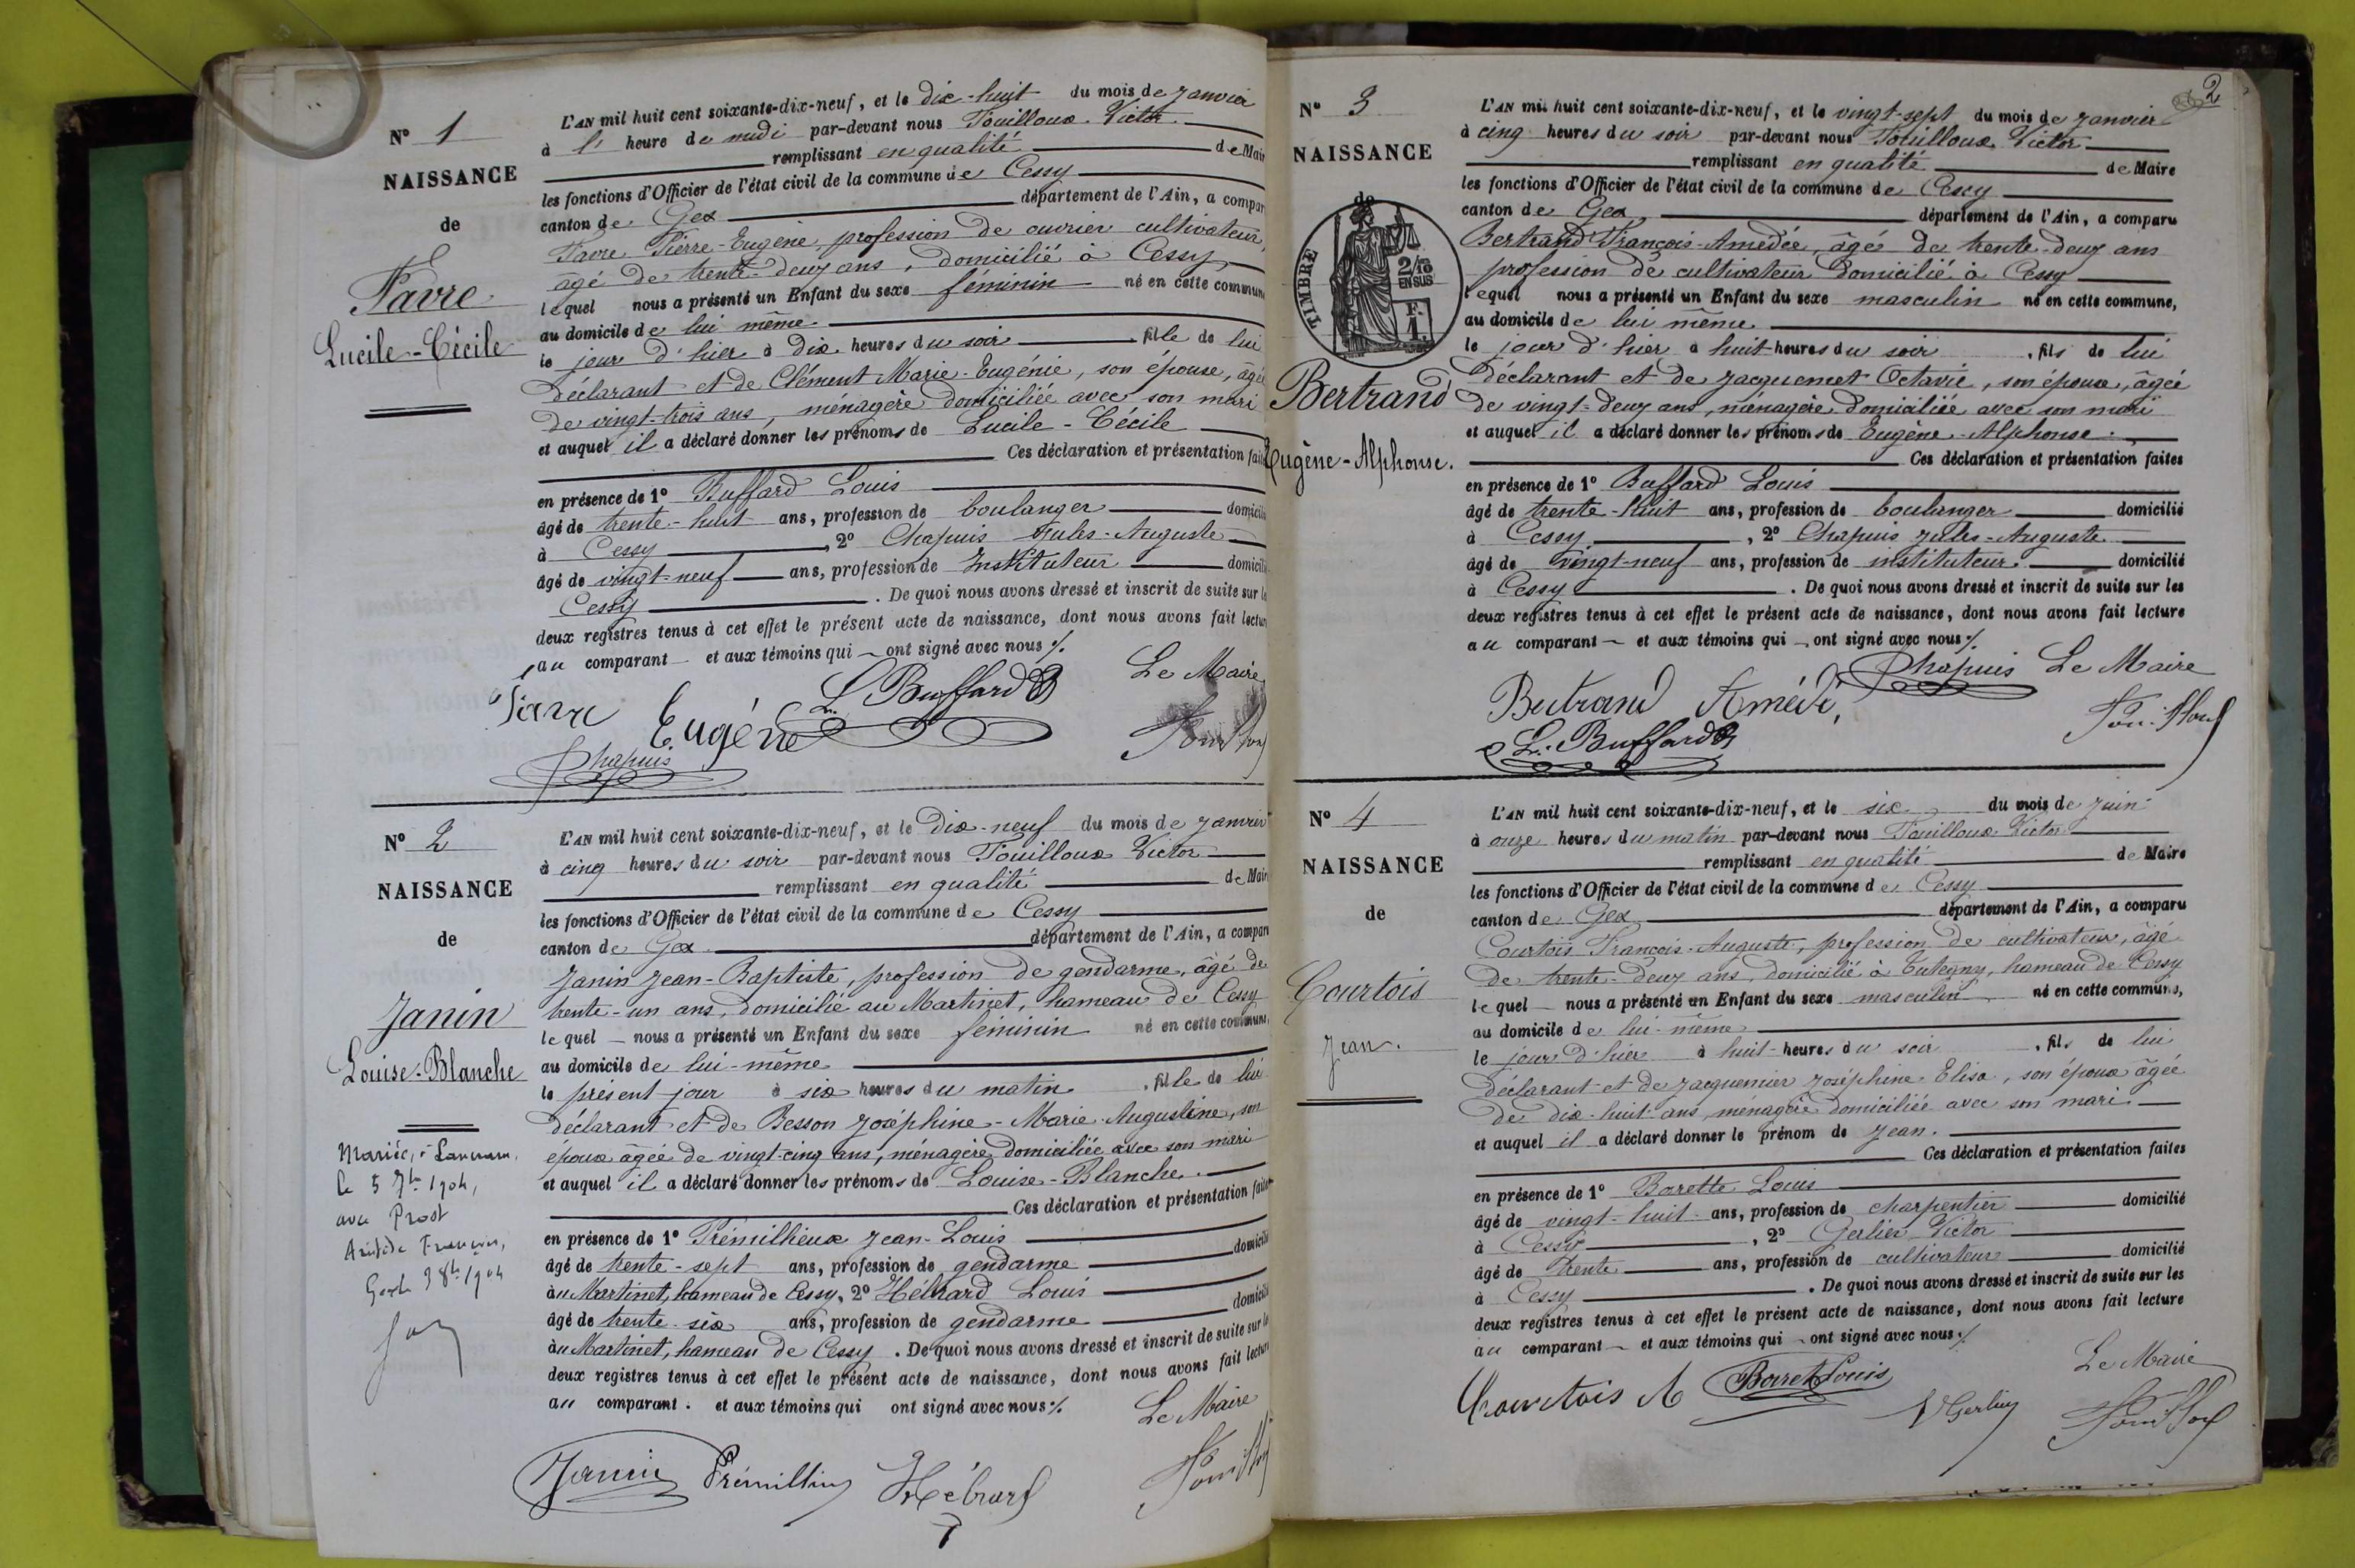 Nº 1
NAISSANCE
de
Favre
Lucile-Cécile
L'AN mil huit cent soixante-dix-neuf, et le dix-huit du mois de Janvier
à l' heure de midi par-devant nous Fouilloux Victor
remplissant en qualité de Mair
les fonctions d'Officier de l'état civil de la commune de Cessy
canton de Gex département de l'Ain, a compar
Favre Pierre-Eugène, profession de ouvrier cultivateur,
âgé de trente-deux ans, domicilié à Cessy
lequel nous a présenté un Enfant du sexe féminin né en cette commun
au domicile de lui même
le jour d'hier à dix heures du soir, fille de lui
déclarant et de Clément Marie-Eugénie, son épouse, âgée
de vingt-trois ans, ménagère domiciliée avec son mari
et auquel il a déclaré donner les prénoms de Lucile-Cécile
Ces déclaration et présentation fait
en présence de 1º Buffard Louis
âgé de trente-huit ans, profession de boulanger domicili
à Cessy, 2º Chapuis Jules-Auguste
âgé de vingt-neuf ans, profession de Instituteur domicili
Cessy. De quoi nous avons dressé et inscrit de suite sur le
deux registres tenus à cet effet le présent acte de naissance, dont nous avons fait lectur
au comparant et aux témoins qui ont signé avec nous ./.
Le Maire
Favre Eugène L. Buffard
Chapuis
Nº 2
NAISSANCE
de
Janin
Louise-Blanche
Mariée à
le 5 7bre 1904,
avec Prost
Aristide François,
1904
L'AN mil huit cent soixante-dix-neuf, et le Dix-neuf du mois de Janvier
à cinq heures du soir par-devant nous Fouilloux Victor
remplissant en qualité de Mair
les fonctions d'Officier de l'état civil de la commune de Cessy
canton de Gex département de l'Ain, a compar
Janin Jean-Baptiste, profession de gendarme, âgé de
trente-un ans, domicilié au Martinet, hameau de Cessy
lequel nous a présenté un Enfant du sexe féminin né en cette commune,
au domicile de lui-même
le présent jour à six heures du matin, fille de lui
déclarant et de Besson Joséphine-Marie-Augustine, son
épouse âgée de vingt-cinq ans, ménagère domiciliée avec son mari
et auquel il a déclaré donner les prénoms de Louise-Blanche.
Ces déclaration et présentation faites
en présence de 1º Prémillieux Jean-Louis
âgé de trente-sept ans, profession de gendarme domicilié
au Martinet, hameau de Cessy, 2º Hébrard Louis
âgé de trente-six ans, profession de gendarme domicilié
au Martinet, hameau de Cessy. De quoi nous avons dressé et inscrit de suite sur le
deux registres tenus à cet effet le présent acte de naissance, dont nous avons fait lectur
au comparant. et aux témoins qui ont signé avec nous ./.
Le Maire
Janin Prémillieux Hébrard
2
Nº 3
NAISSANCE
de
TIMBRE
2/10
EN SUS
F.
1.
Bertrand
Eugène-Alphonse.
L'AN mil huit cent soixante-dix-neuf, et le vingt-sept du mois de Janvier
à cinq heures du soir par-devant nous Fouilloux Victor
remplissant en qualité de Maire
les fonctions d'Officier de l'état civil de la commune de Cessy
canton de Gex département de l'Ain, a comparu
Bertrand François-Amédée, âgé de trente-deux ans
profession de cultivateur domicilié à Cessy
lequel nous a présenté un Enfant du sexe masculin né en cette commune,
au domicile de lui même
le jour d'hier à huit heures du soir, fils de lui
déclarant et de Jacquemet Octavie, son épouse, âgée
de vingt-deux ans, ménagère domiciliée avec son mari
et auquel il a déclaré donner les prénoms de Eugène-Alphonse.
Ces déclaration et présentation faites
en présence de 1º Buffard Louis
âgé de trente-huit ans, profession de boulanger domicilié
à Cessy, 2º Chapuis Jules-Auguste
âgé de vingt-neuf ans, profession de instituteur. domicilié
à Cessy. De quoi nous avons dressé et inscrit de suite sur les
deux registres tenus à cet effet le présent acte de naissance, dont nous avons fait lecture
au comparant et aux témoins qui ont signé avec nous ./.
Chapuis Le Maire
Bertrand Amédé,
L. Buffard
Nº 4
NAISSANCE
de
Courtois
Jean.
L'AN mil huit cent soixante-dix-neuf, et le six du mois de Juin
à onze heures du matin par-devant nous Fouilloux Victor
remplissant en qualité de Maire
les fonctions d'Officier de l'état civil de la commune de Cessy
canton de Gex département de l'Ain, a comparu
Courtois François-Auguste, profession de cultivateur, âgé
de trente-deux ans, domicilié à Tutegny, hameau de Cessy
lequel nous a présenté un Enfant du sexe masculin né en cette commune,
au domicile de lui-même
le jour d'hier à huit heures du soir, fils de lui
déclarant et de Jacquemier Joséphine Elisa, son épouse âgée
de dix-huit ans, ménagère domiciliée avec son mari
et auquel il a déclaré donner le prénom de Jean.
Ces déclaration et présentation faites
en présence de 1º Borette Louis
âgé de vingt-huit ans, profession de charpentier domicilié
à Cessy, 2º Gerlier Victor
âgé de trente ans, profession de cultivateur domicilié
à Cessy. De quoi nous avons dressé et inscrit de suite sur les
deux registres tenus à cet effet le présent acte de naissance, dont nous avons fait lecture
au comparant et aux témoins qui ont signé avec nous ./.
Le Maire
Courtois A Boret Louis
V Gerlier